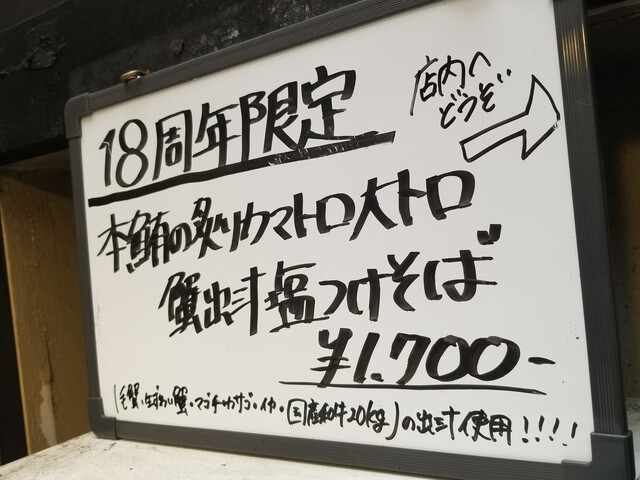 18周年限定
店内へ
どうぞ
本鮪の炙りカマトロ大トロ
蟹出汁塩つけそば
¥1.700-
(毛蟹・生ずわい蟹・マゴチ・カサゴ・イカ・国産和牛20kg)の出汁使用!!!!